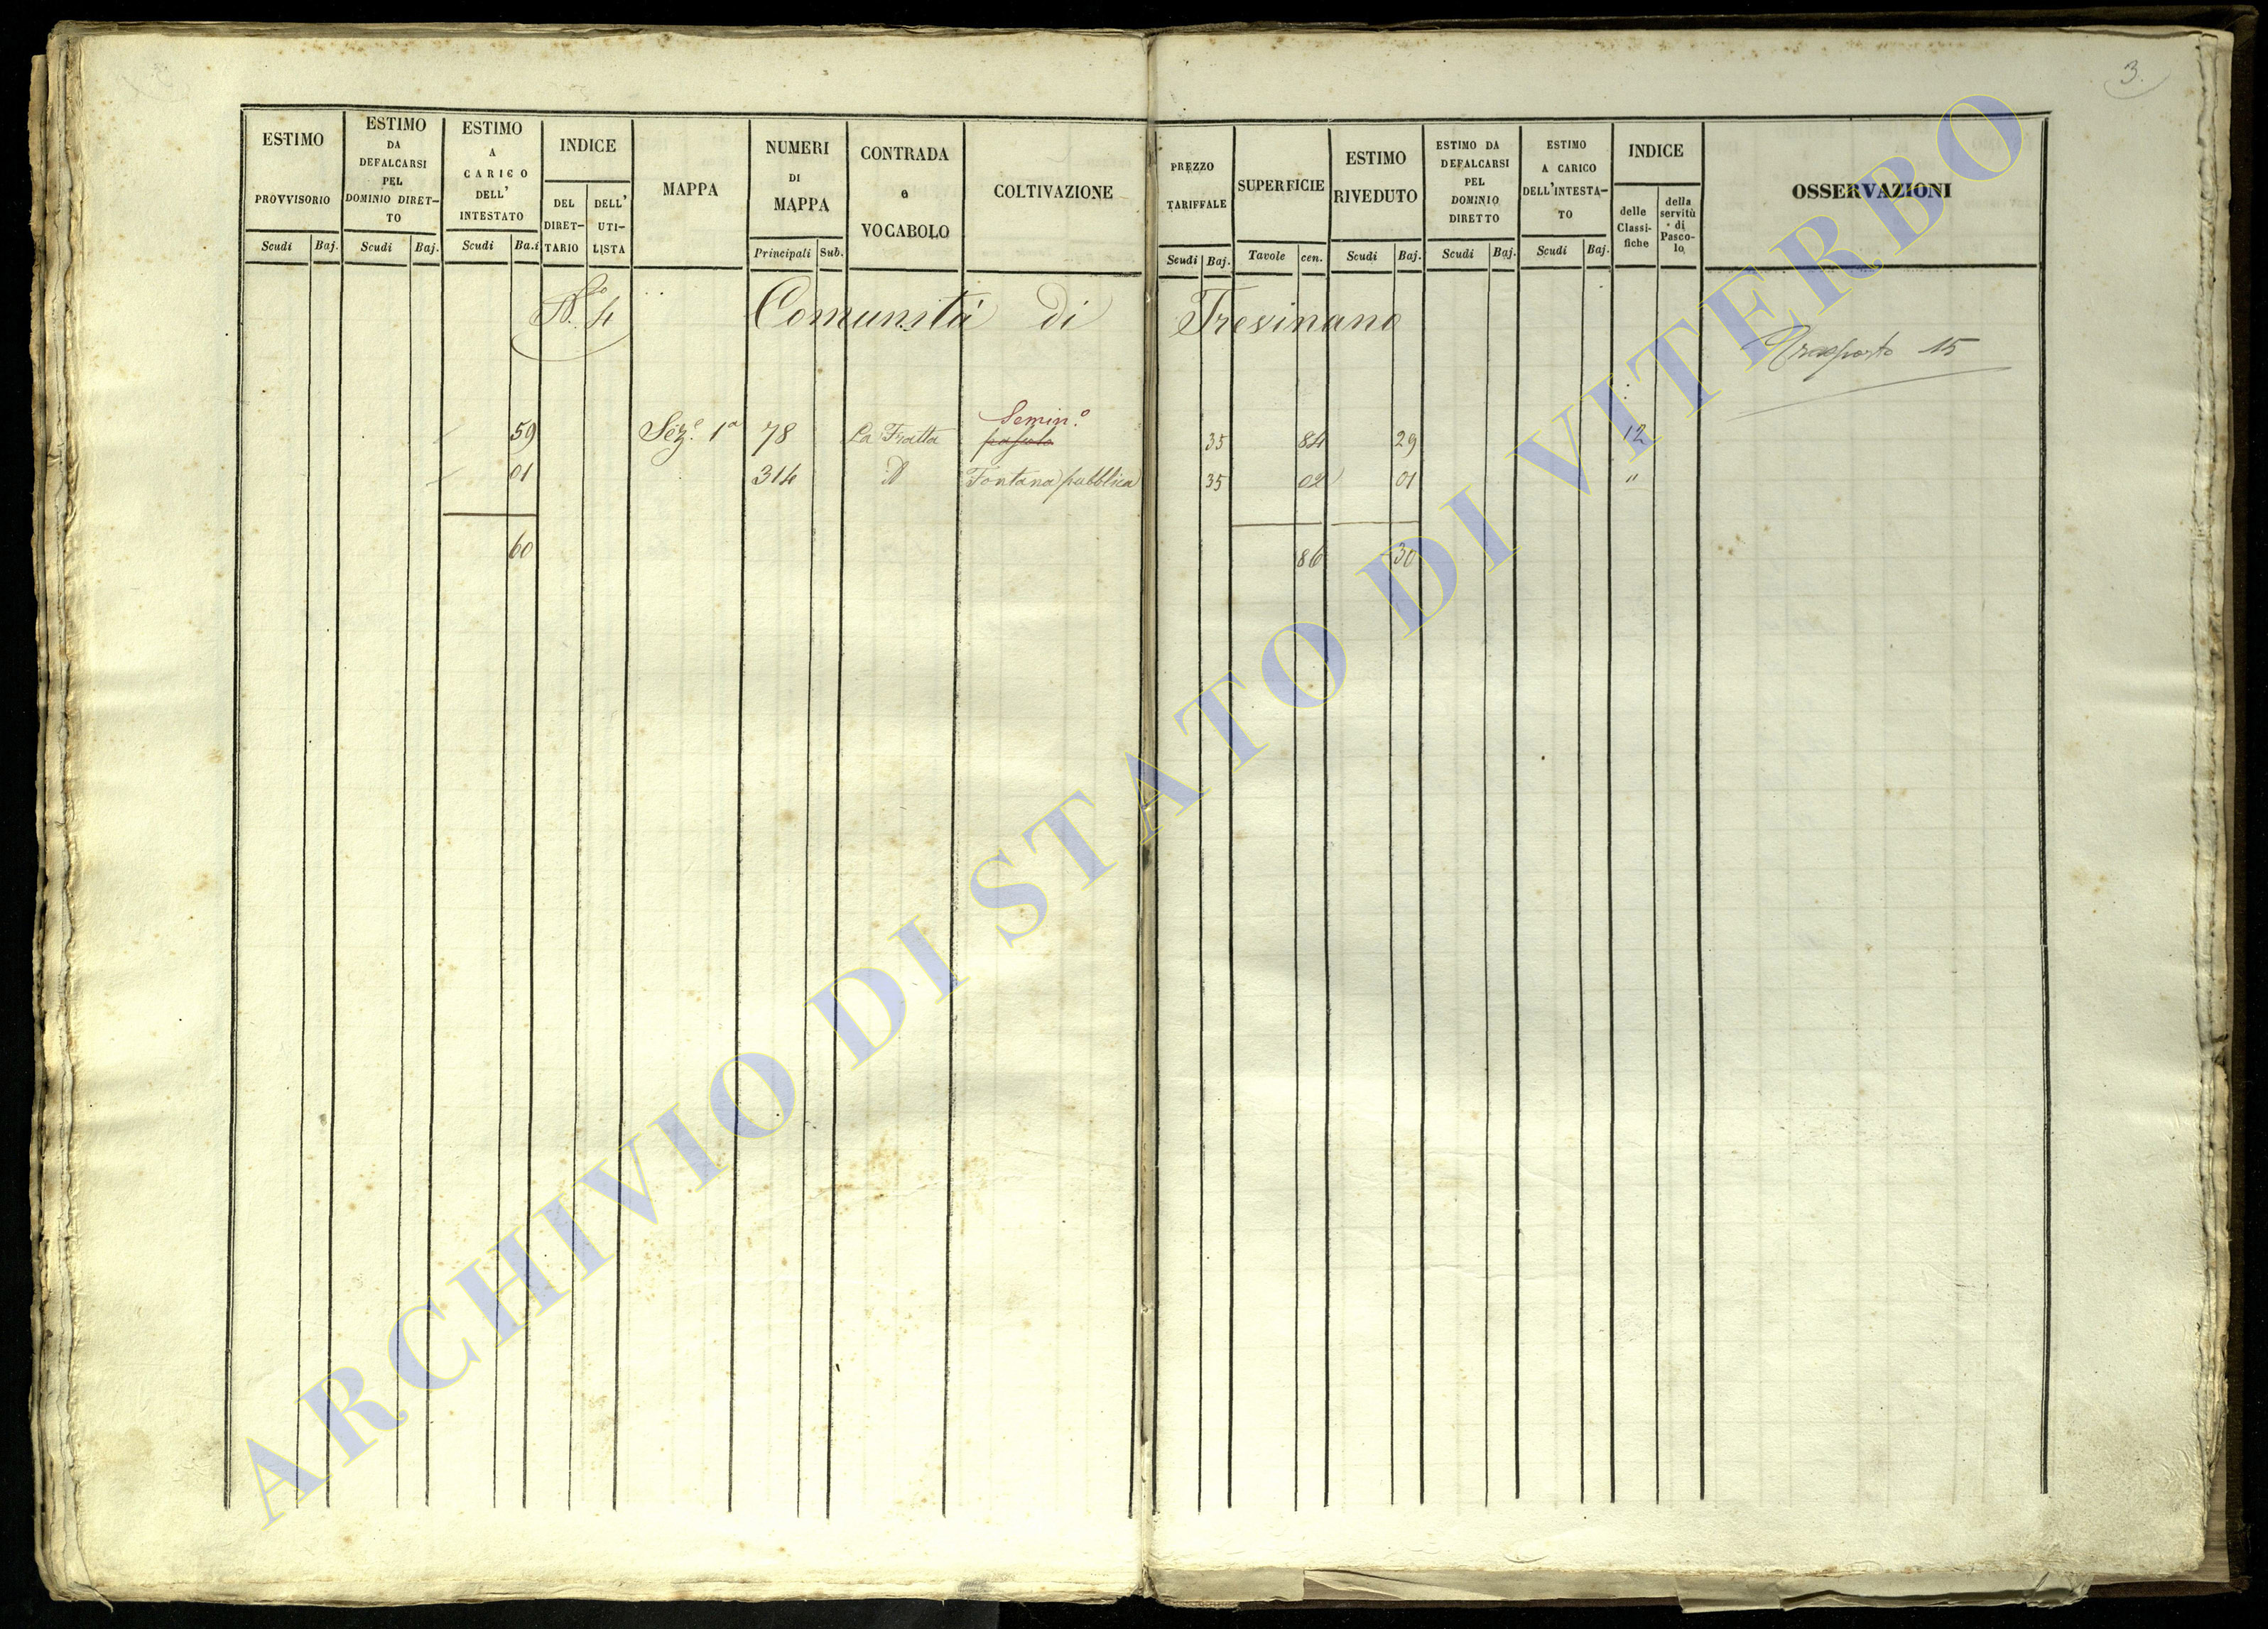 3.
ESTIMO PROVVISORIO Scudi Baj.
ESTIMO DA DEFALCARSI PEL DOMINIO DIRET-TO Scudi Baj.
ESTIMO A CARICO DELL' INTESTATO Scudi Ba.i
INDICE DEL DIRET-TARIO DELL' UTI-LISTA
MAPPA
NUMERI DI MAPPA Principali Sub.
CONTRADA o VOCABOLO
COLTIVAZIONE
PREZZO TARIFFALE Scudi Baj.
SUPERFICIE Tavole cen.
ESTIMO RIVEDUTO Scudi Baj.
ESTIMO DA DEFALCARSI PEL DOMINIO DIRETTO Scudi Baj.
ESTIMO A CARICO DELL'INTESTA-TO Scudi Baj.
INDICE delle Classi-fiche della servitù di Pasco-lo
OSSERVAZIONI
N.o 4 Comunità di Trevinano
Trasporto 15
Semin.o
59 Sez.e 1a 78 La Fratta pascolo 35 84 29 12
01 314 D Fontana pubblica 35 02 01 "
60 86 30
ARCHIVIO DI STATO DI VITERBO